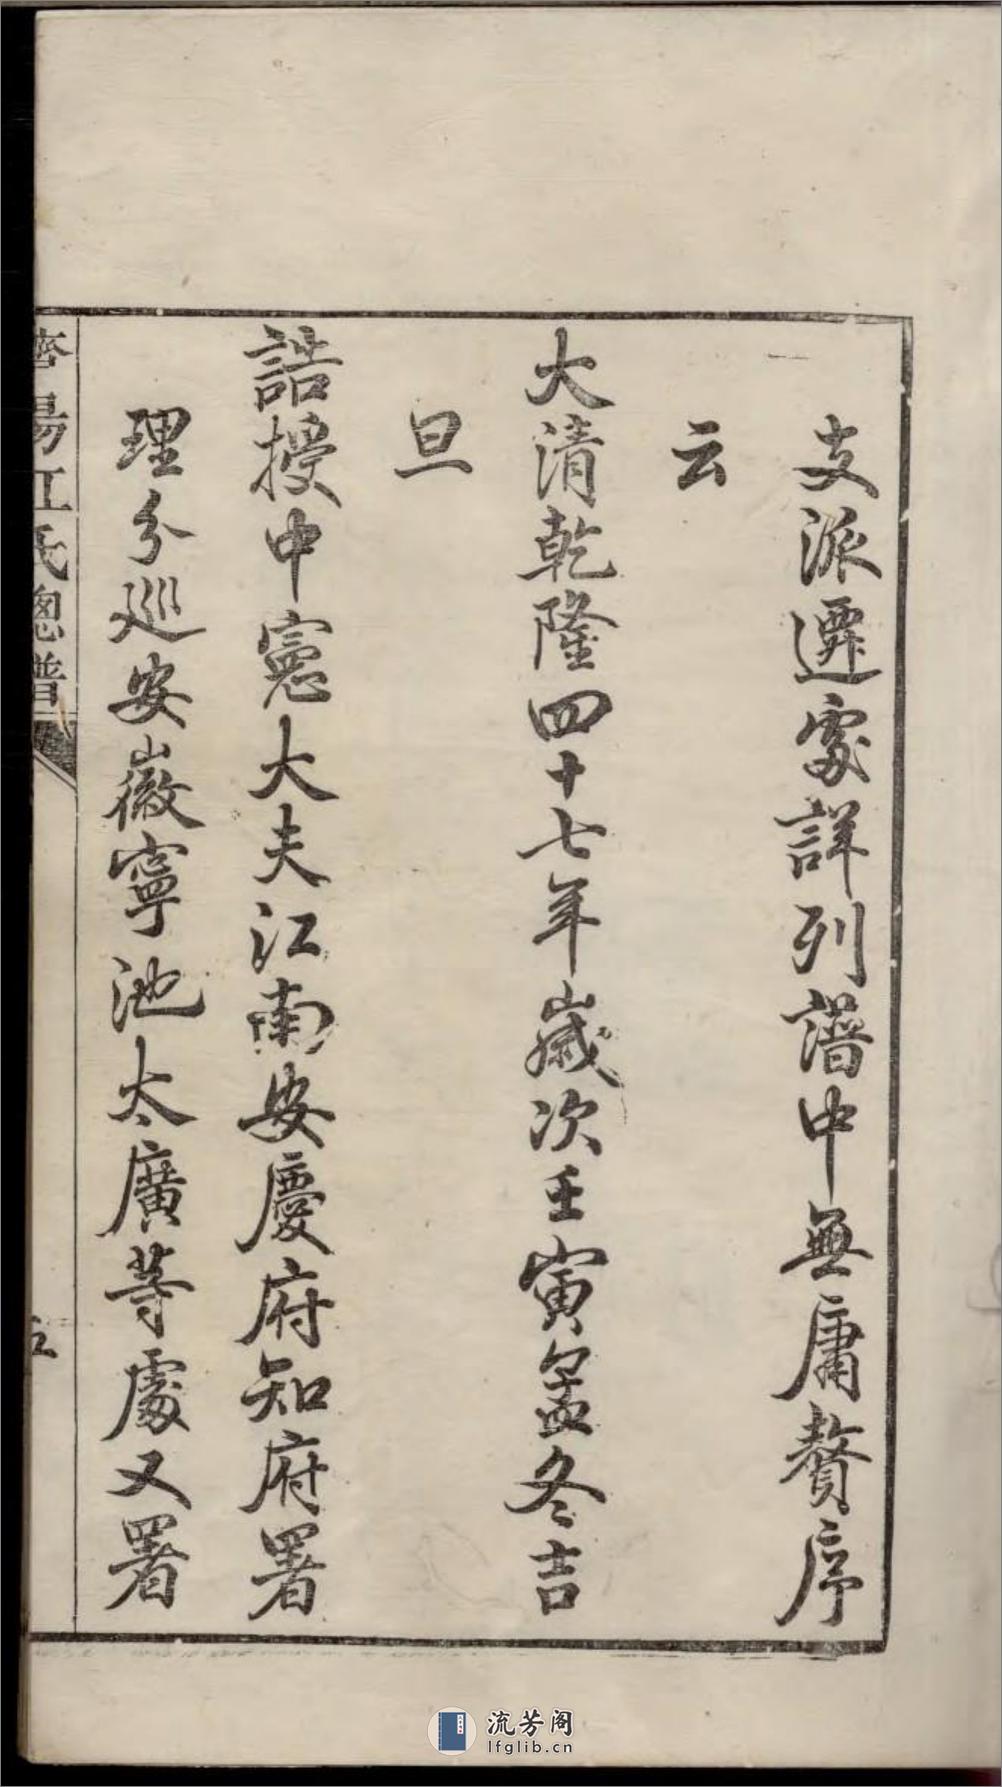 支派遷處詳列譜中無庸贅序
云
大清乾隆四十七年歲次壬寅孟冬吉
旦
誥授中憲大夫江南安慶府知府署
理分巡安徽寧池太廣等處又署
濟陽江氏總譜
五
流芳阁
lfglib.cn